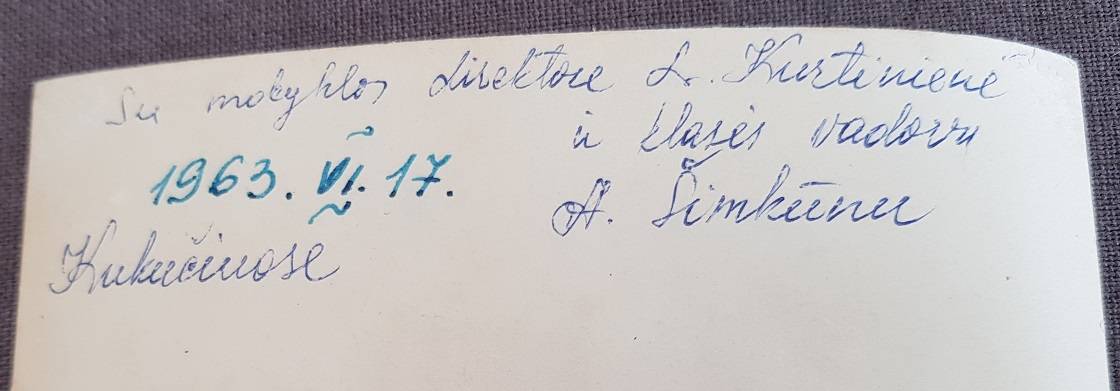 Su mokyklos direktore L. Kurtinienė
ir klasės vadovu
1963. VI. 17.
A. Šimkūnu
Kukučinose